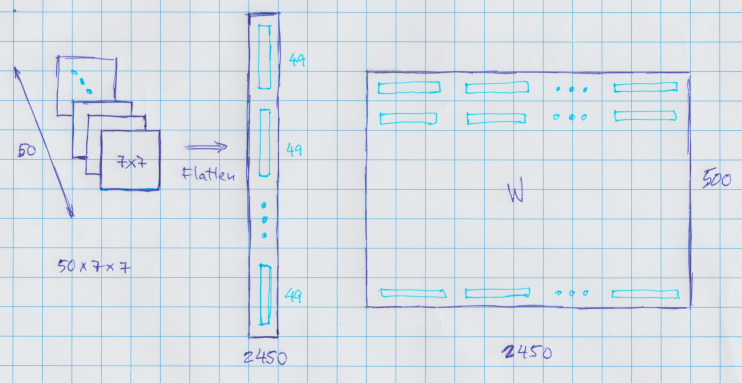 50
7x7
50x7x7
Flatten
49
49
49
2450
W
500
2450